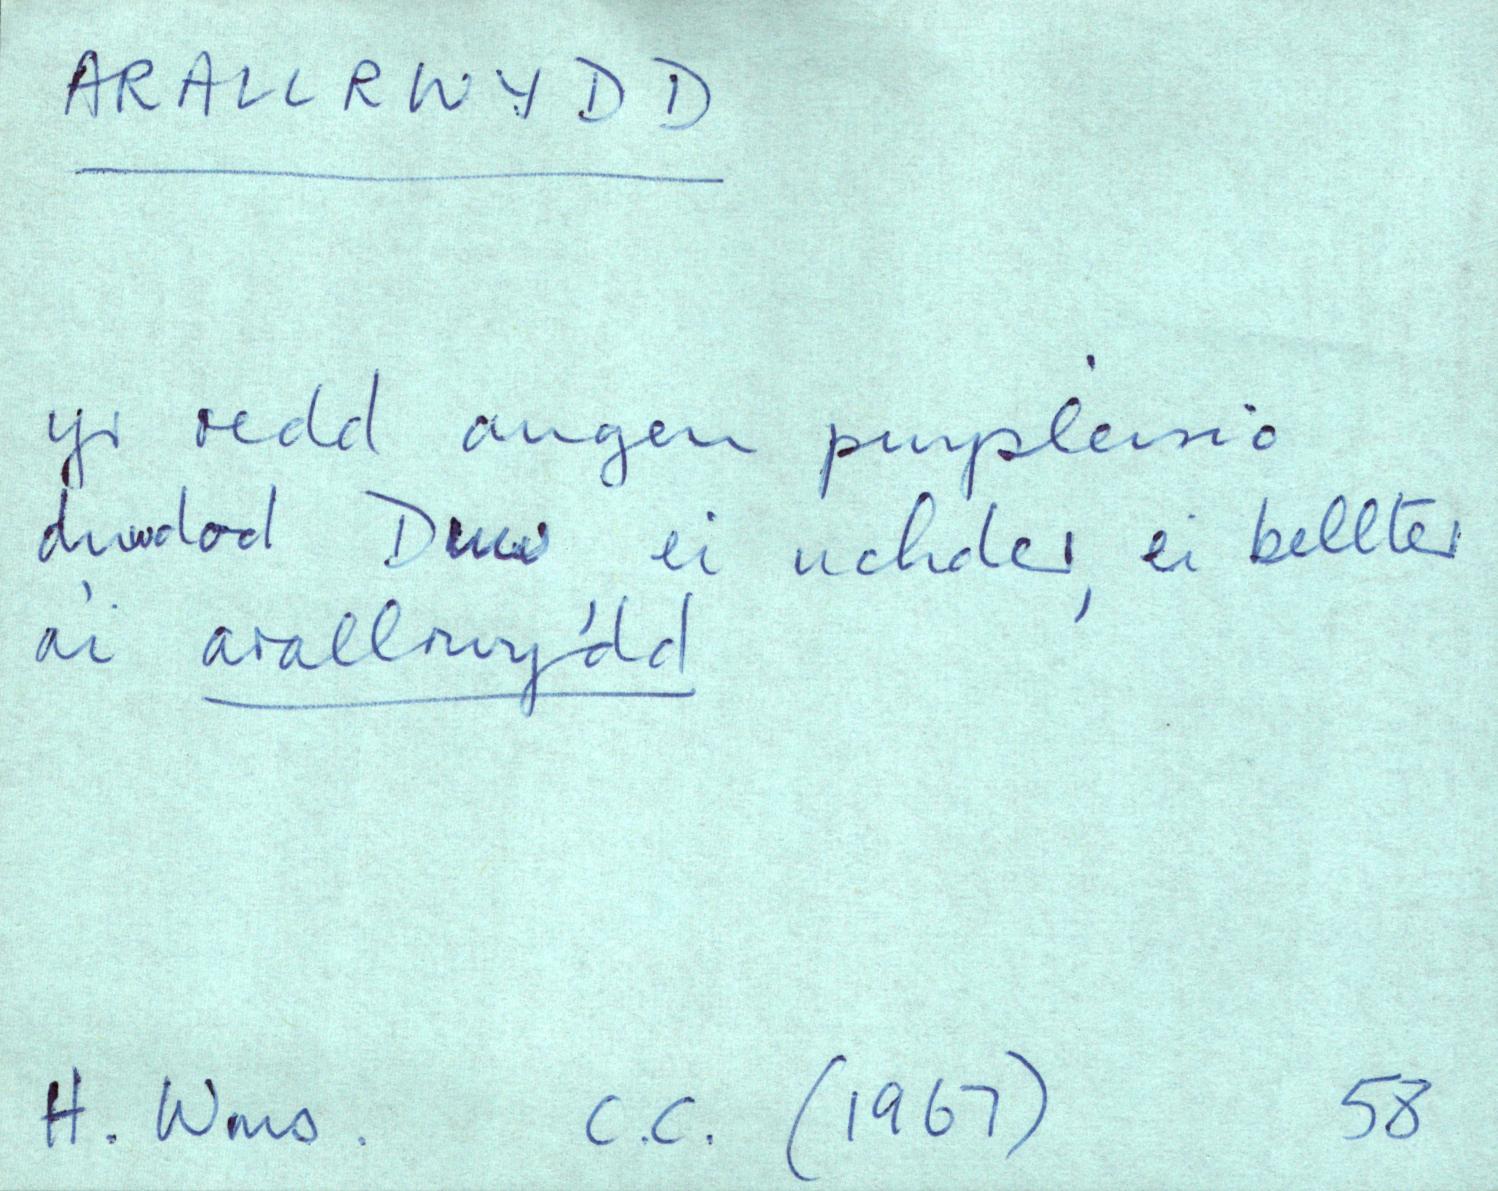 ARALLRWYDD
yr oedd angen pwysleisio
duwdod Duw ei uchder, ei bellter
a'i arallrwy'dd
H. Wms. C.C. (1967) 58